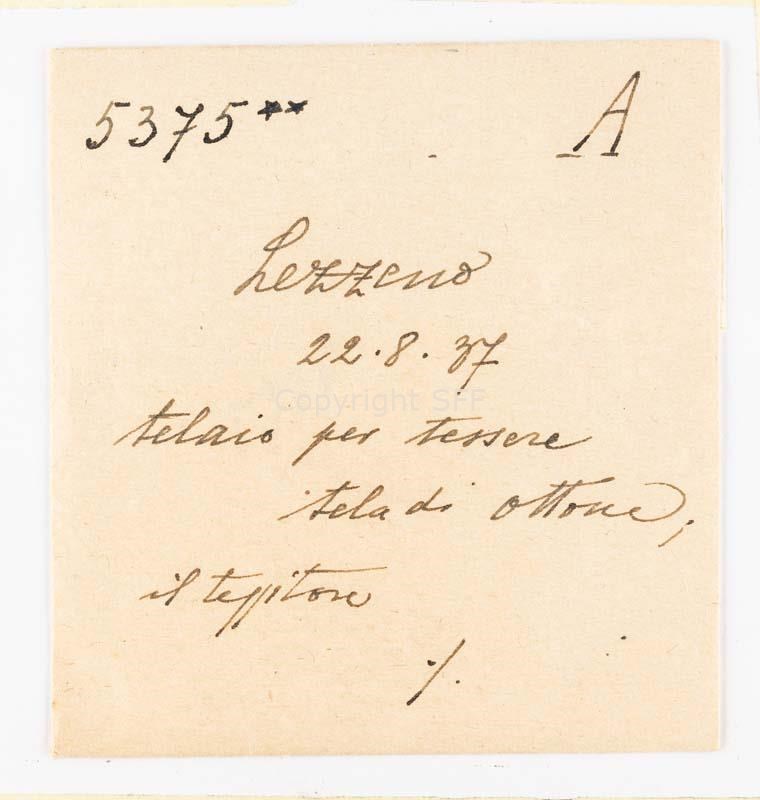 5375** A
Lezzeno
22.8.37
Copyright SFF
telaio per tessere
tela di ottone,
il tessitore
./.